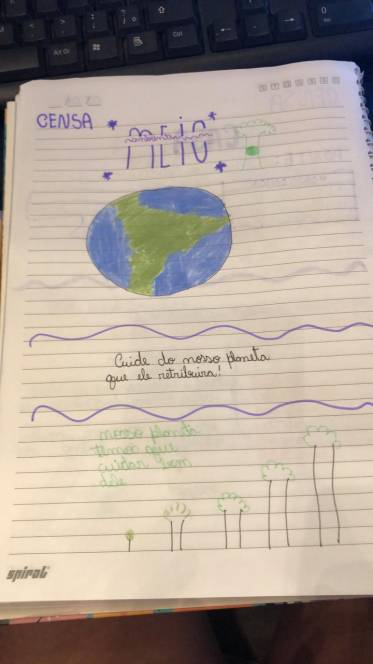 CENSA
MEIO
Cuide do nosso planeta
que ele retribuira!
nosso planeta
temos que
cuidar bem
dele
spiral